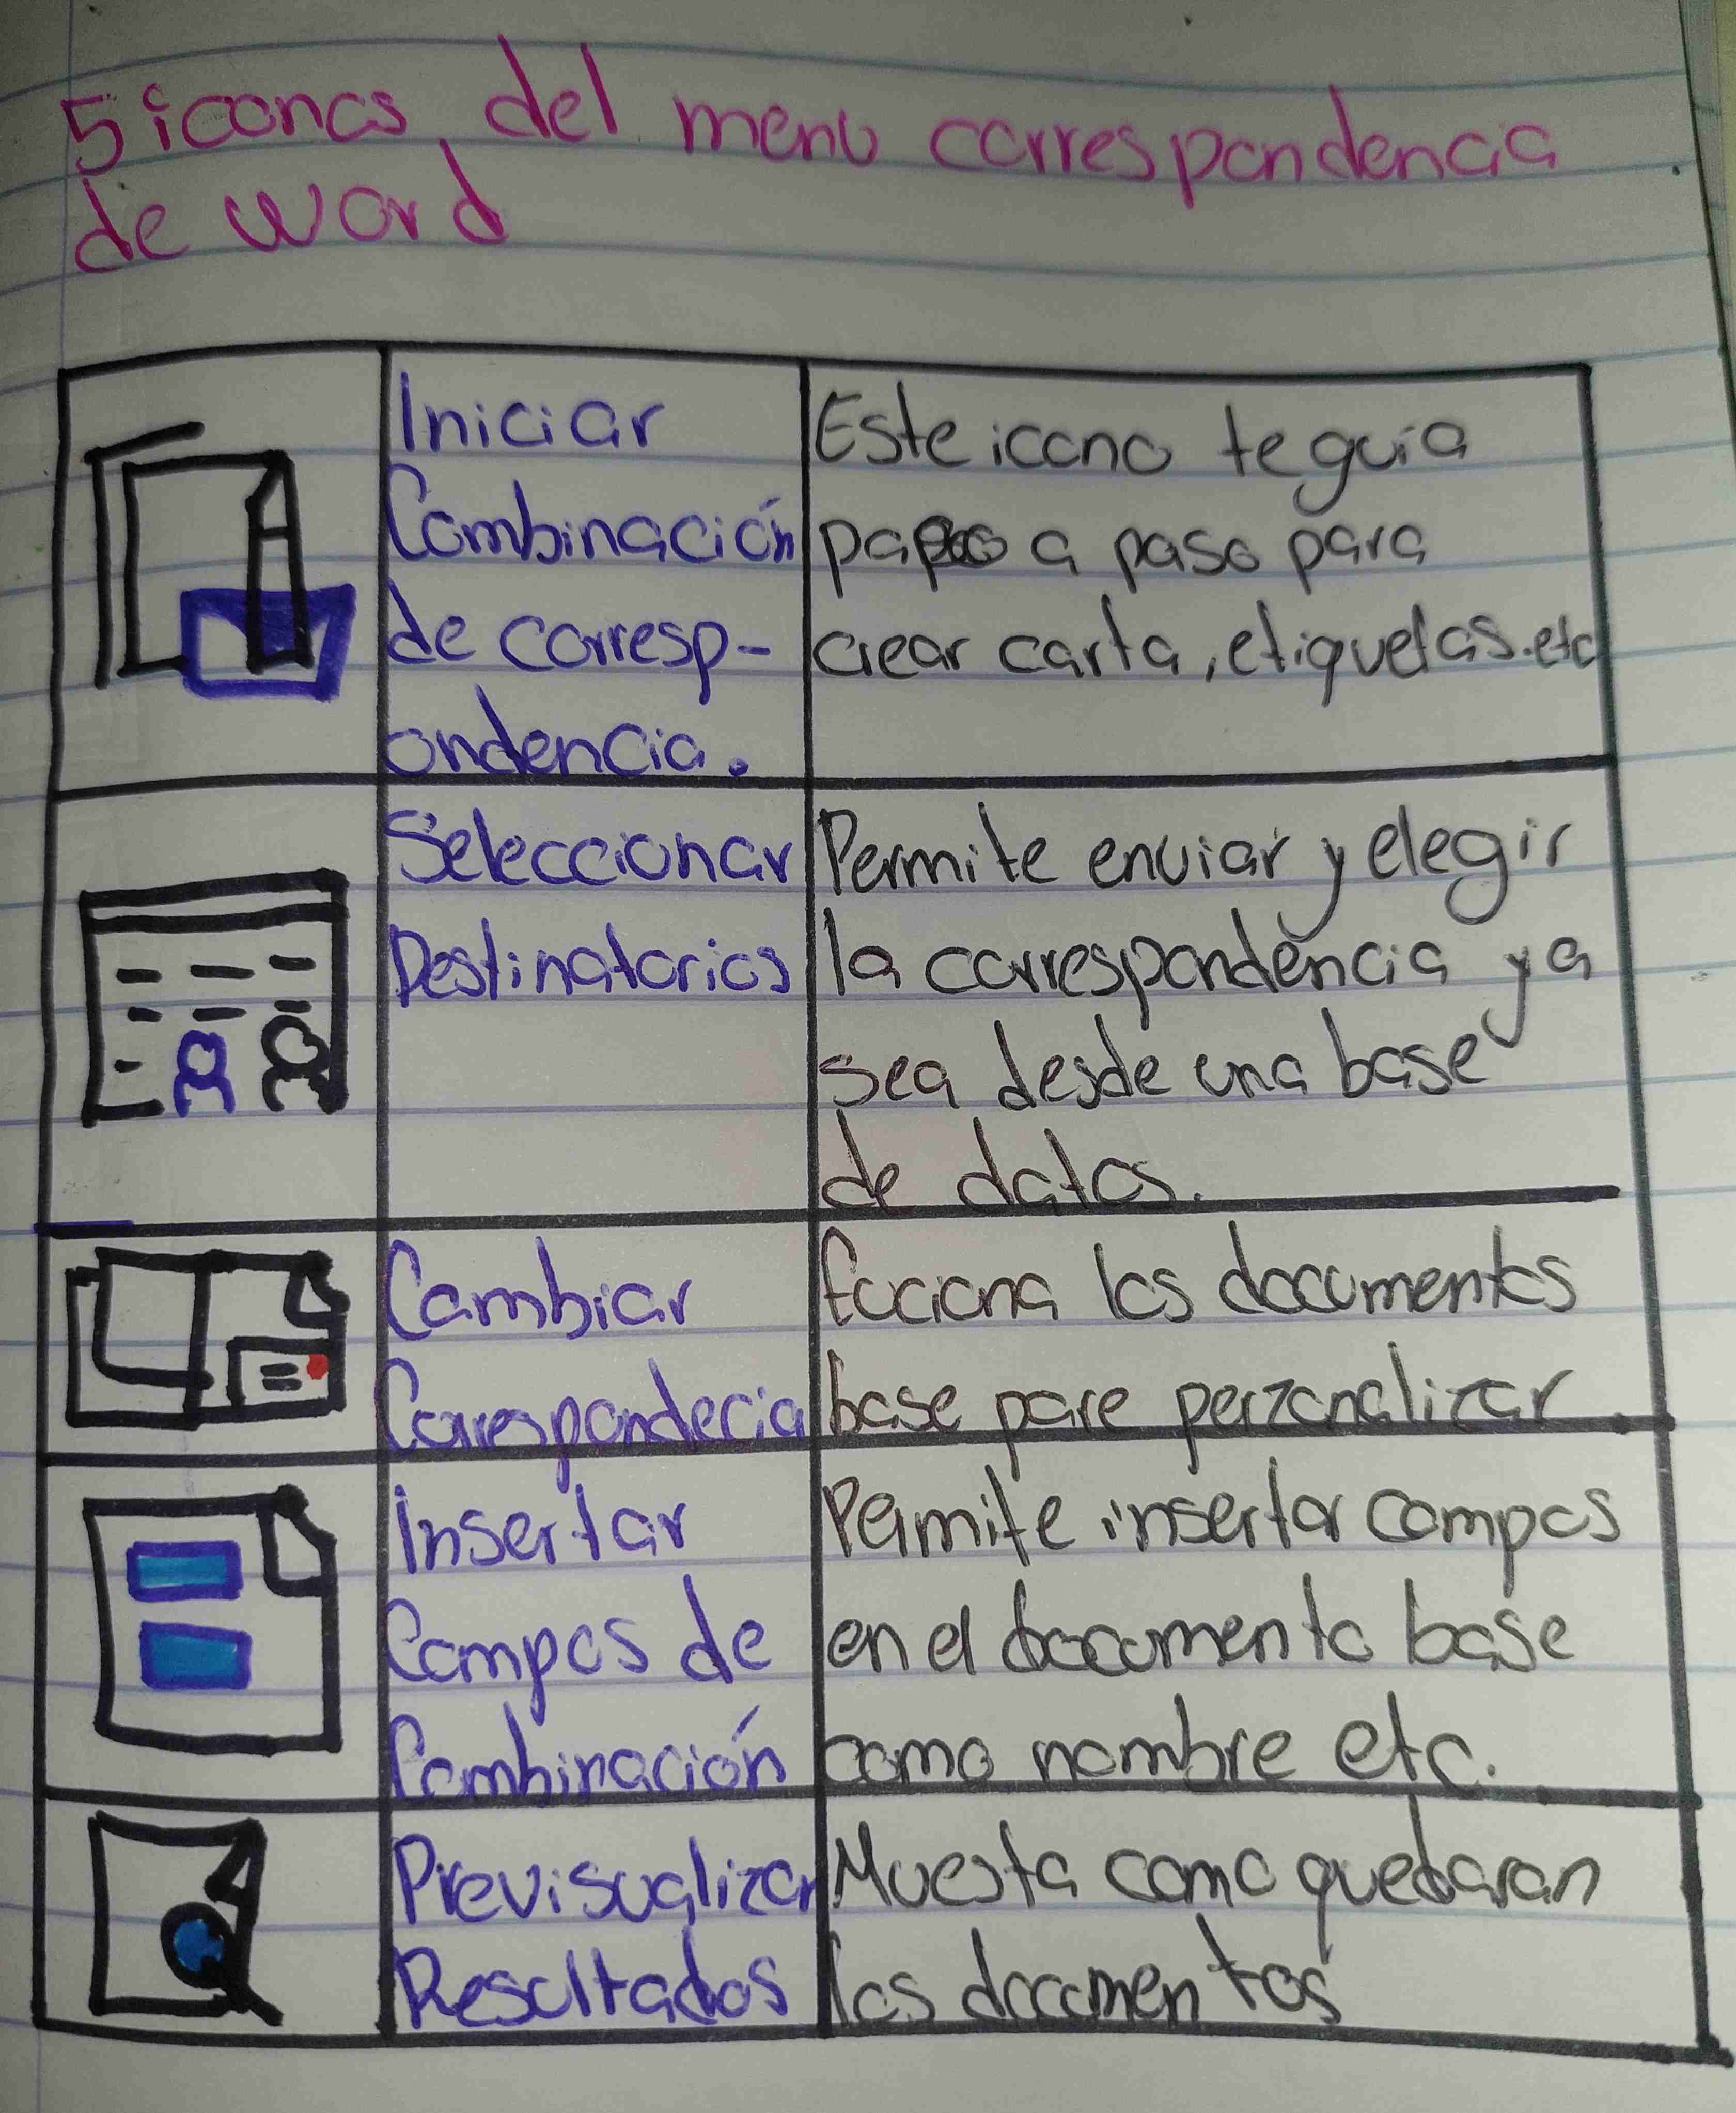 5 iconos del menu correspondencia
de word
Iniciar
Combinación
de corresp-
ondencia.
Este icono te guia
paso a paso para
crear carta, etiquetas.etc
Seleccionar
Destinatarios
Permite enviar y elegir
la correspondencia ya
sea desde una base
de datos.
Cambiar
Correspondecia
fuciona los documentos
base para perzonalizar
Insertar
Campos de
Combinación
Permite insertar campos
en el documento base
como nombre etc.
Previsualizar
Resultados
Muesta como quedaran
los documentos